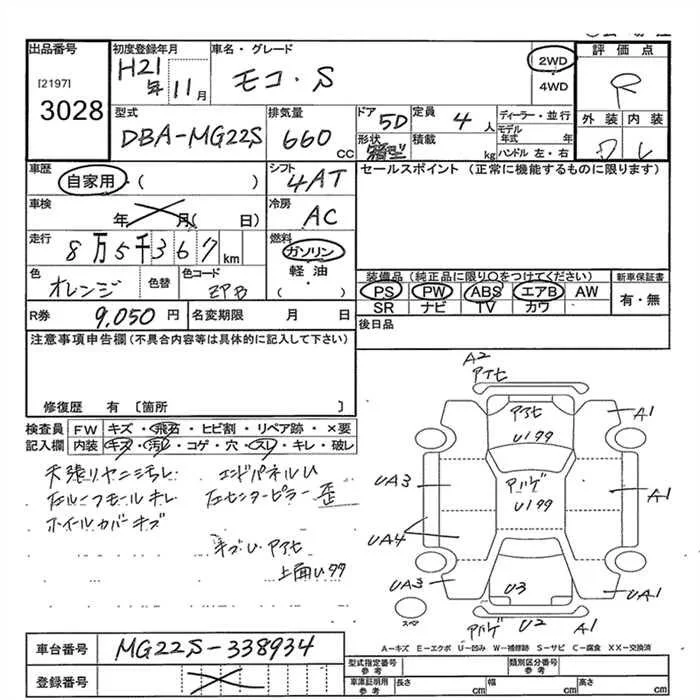 出品番号
[2197]
3028
初度登録年月
H21年 11月
車名・グレード
モコ・S
2WD
4WD
評価点
R
外装 内装
型式
DBA-MG22S
排気量
660 cc
ドア
5D
定員
4人
形状
箱型
積載
kg
ディーラー・並行
モデル年式 年
ハンドル 左・右
車歴
自家用・( )
シフト
4AT
セールスポイント (正常に機能するものに限ります)
車検
年 月( 日)
冷房
AC
走行
8万5千367km
燃料
ガソリン
軽油
( ・ )
色
オレンジ
色替
色コード
ZPB
装備品 (純正品に限り○をつけてください)
PS PW ABS エアB AW
SR ナビ TV カワ
新車保証書
有・無
R券 9,050円
名変期限 月 日
後日品
注意事項申告欄(不具合内容等は具体的に記入して下さい)
修復歴 有 〔箇所 〕
検査員記入欄
FW キズ・飛石・ヒビ割・リペア跡・×要
内装 キズ・汚レ・コゲ・穴・スレ・キレ・破レ
天張りヤニ汚レ
左ルーフモールキレ
ホイールカバーキズ
エンドパネルU
左センターピラー歪
キズU アアセ
上面U99
A2
アアセ
アアセ
U199
アハゲ
U199
A1
A1
UA3
UA4
UA3
U3
UA1
スペア
アハゲ U2 A1
A−キズ E−エクボ U−凹み W−補修跡 S−サビ C−腐食 XX−交換済
車台番号
MG22S-338934
登録番号
型式指定番号
参考
類別区分番号
参考
車庫証明用
参考
長さ cm
幅 cm
高さ cm